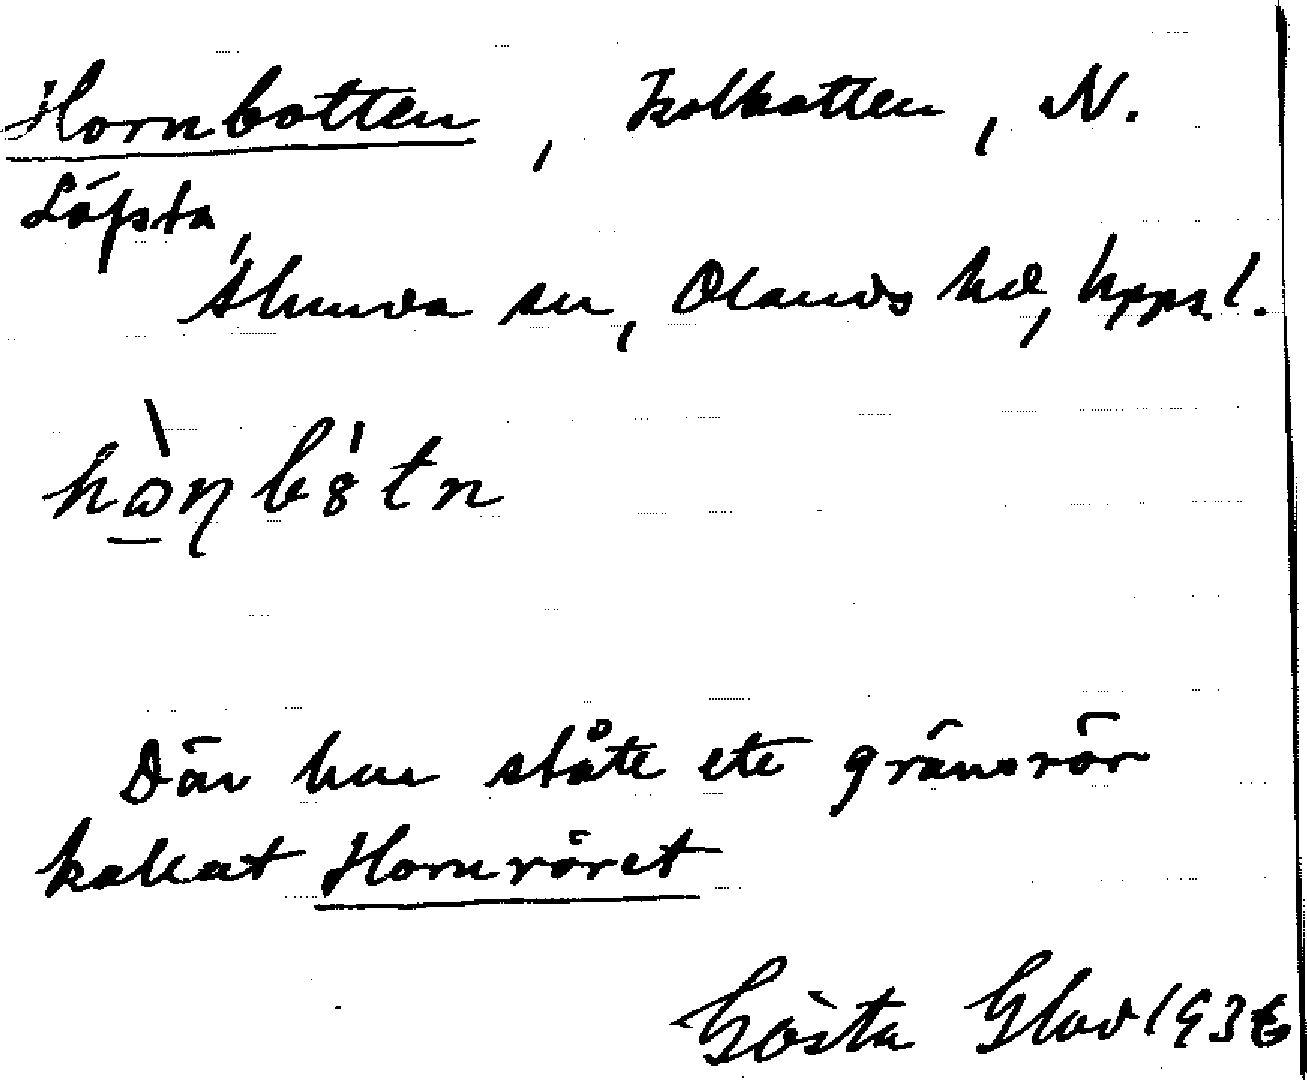 Hornbotten, kolbotten, N.
Löfsta,
Alunda sn, Olands hd, Upps. l.
hònbåtn
Där har stått ett gränsrör
kallat Hornröret
Gösta Glad 1936